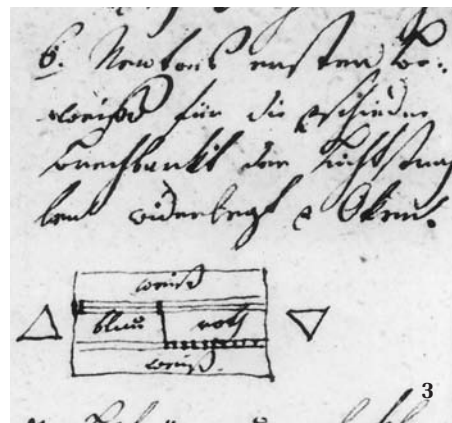 6. Newtons ersten Be-
weiß für die verschiedne
Brechbarkeit der Lichtstrah
len widerlegt v Oken.
weiß
blau roth
weiß.
3